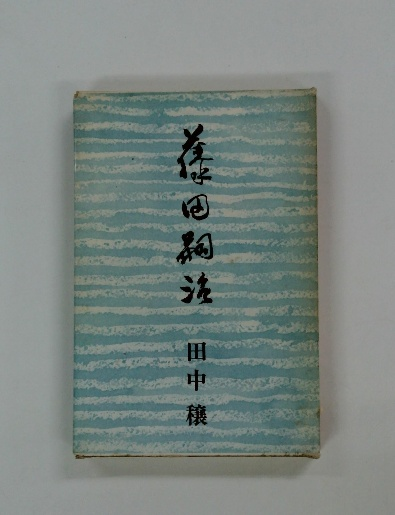 藤田嗣治
田中穣